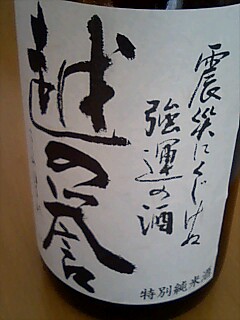 震災にくじけぬ
強運の酒
越の誉
特別純米酒